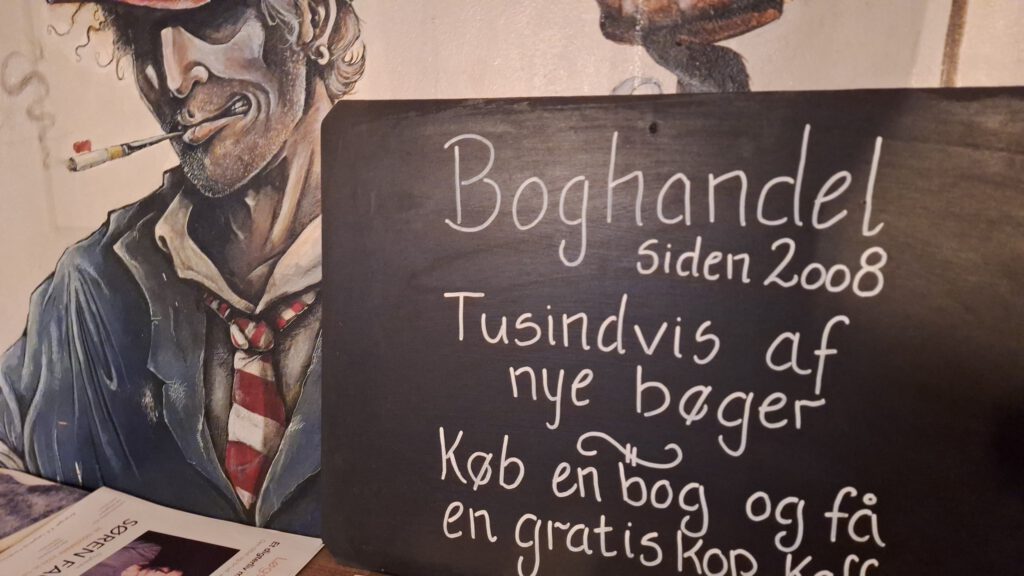 Boghandel
siden 2008
Tusindvis af
nye bøger
Køb en bog og få
en gratis kop
SØREN